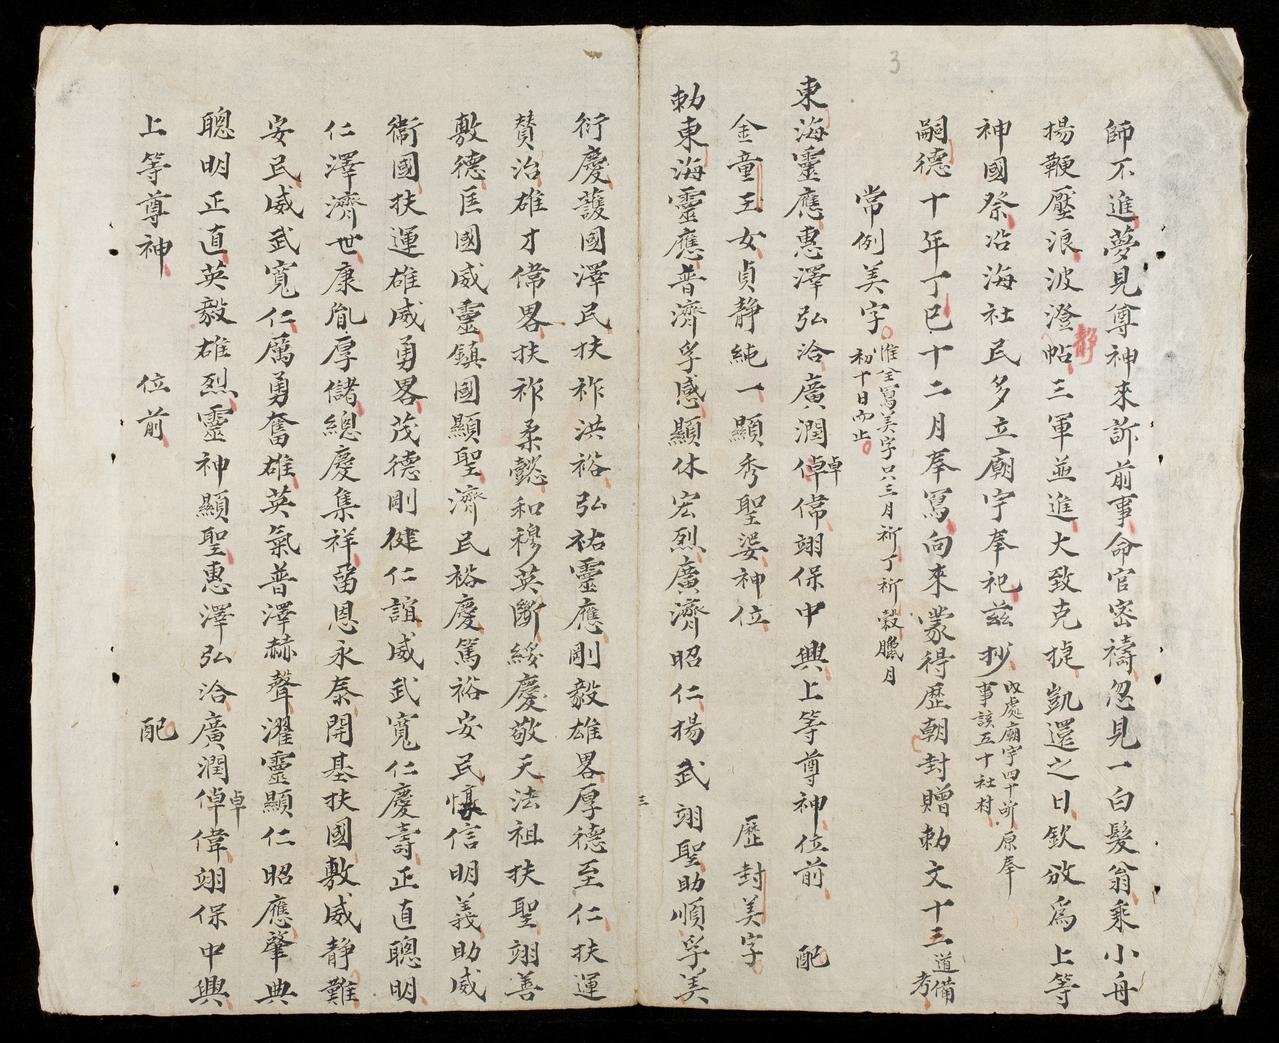 3
師不進夢見尊神來訴前事命官密禱忽見一白髮翁乘小舟
揚鞭壓浪波澄帖三軍並進大致克捷凱還之日欽放為上等
靜
神國祭沿海社民多立廟宇奉祀茲抄
改處廟宇四十所原奉
事該五十社村
嗣德十年丁巳十二月奉寫向來蒙得歷朝封贈勅文十三道備
考
常例美字
惟全寫美字只三月祈丁祈穀臘月
初十日而止
東海靈應惠澤弘洽廣潤倬偉翊保中興上等尊神位前 配
卓
金童玉女貞靜純一顯秀聖婆神位 歷封美字
勅東海靈應普濟孚感顯休宏烈廣濟昭仁揚武翊聖助順孚美
三
衍慶護國澤民扶祚洪裕弘祐靈應剛毅雄畧厚德至仁扶運
贊治雄才偉畧扶祚柔懿和穆英斷綏慶敬天法祖扶聖翊善
敷德匡國威靈鎮國顯聖濟民裕慶篤裕安民慎信明義助威
衛國扶運雄威勇畧茂德剛健仁誼威武寬仁慶壽正直聰明
仁澤濟世康胤厚儲總慶集祥留恩永泰開基扶國敷威靜難
安民威武寬仁厲勇奮雄英氣普澤赫聲濯靈顯仁昭應肇典
聰明正直英毅雄烈靈神顯聖惠澤弘洽廣潤倬偉翊保中興
卓
上等尊神 位前 配